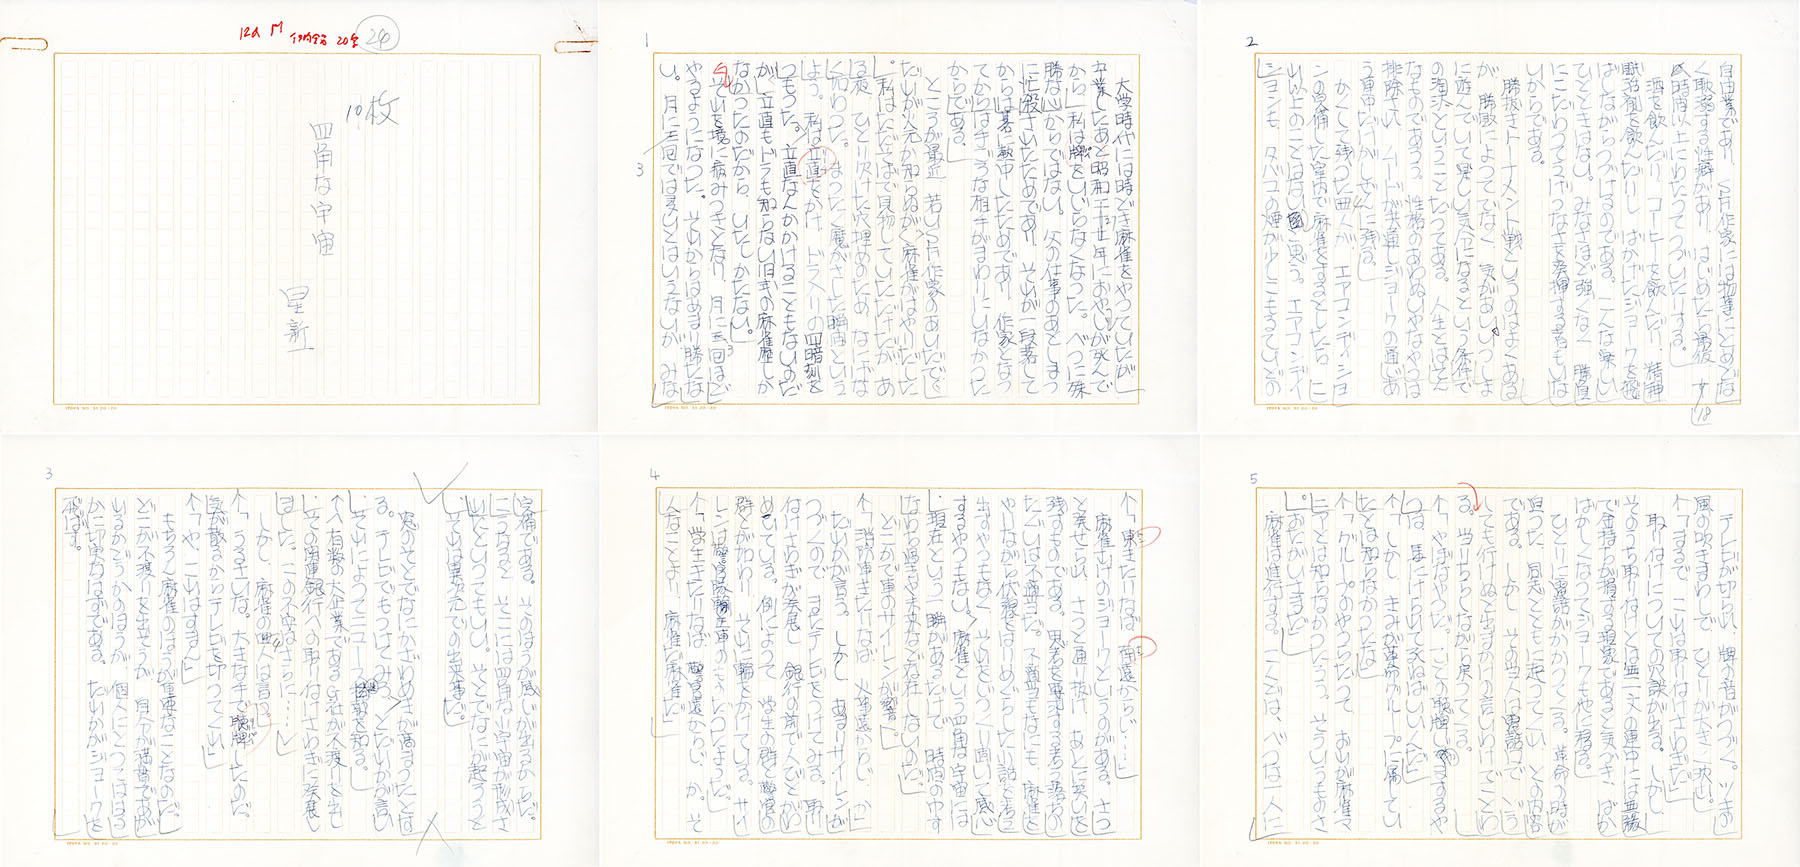 24
10枚
四角な宇宙
星新一
1
大学時代には時どき麻雀をやっていたが、
卒業したあと昭和二十 年におやじが死んで
から、私は牌をいじらなくなった。べつに殊
勝な心からではない。父の仕事のあとしまつ
に忙殺されたためであり、それが一段落して
からは碁に熱中したためであり、作家となっ
てからは 相手がまわりにいなかった
からである。
ところが最近、若いSF作家のあいだで、
だれが火元か知らぬが、麻雀がはやりだした
。私はただそばで見物していただけだが、あ
る夜、ひとり欠けた穴埋めのため、なにげな
く加わった。まったく魔がさした瞬間という
よう。私は立直をかけ、ドラ入りの四暗刻を
つもった。立直なんかかけることもないのだ
が、立直もドラも知らない旧式の麻雀歴しか
なかったのだから、いたしかたない。
それを境に病みつきとなり、月に三回ほど
やるようになった。それからはあまり勝たな
い。月に三回では多いとはいえないが、みな
3
2
自由業であり、SF作家には物事にとめどな
く耽溺する性癖があり、はじめたら最後、十
時間以上にわたってつづいたりする。
18
酒を飲んだり、コーヒーを飲んだり、精神
剤を飲んだりし、ばかげたジョークを飛
ばしながらつづけるのである。こんな楽しい
ひとときはない。みなさほど強くなく、勝負
にこだわってえげつなさを発揮するものもいな
いからである。
勝抜きトーナメント戦というのはよくある
が、勝敗によってでなく、気があいいっしょ
に遊んでいて楽しい気分になるという条件で
の淘汰ということだってある。人生とはそん
なものであろう。性格のあわぬいやなやつは
排除され、ムードが共通しジョークの通じあ
う連中だけがしぜんに残る。
かくして残った四人が、エアコンディショ
ンの完備した室内で麻雀をするとしたら、こ
れ以上のことはないと思う。エアコンディイ
ションも、タバコの煙が少しこもるていどの
3
完備である。そのほうが感じが出るからだ。
こうなると、そこには四角な小宇宙が形成さ
れたといってもいい。そとでなにが起ろうと
、それは異次元での出来事だ。
窓のそとでなにかざわめきが高まったとす
る。テレビでもつけてみろ、とだれかが言い
、それによってニュース を知る。
〈有数の大企業であるG社が不渡りを出し
、その関連銀行への取り付けさわぎに発展し
ました。この不安はさらに……〉
しかし、麻雀の四人は言う。
「うるさいな。大きな手で聴牌したのだ。
気が散るからテレビを切ってくれ」
「や、これはすまん」
もちろん麻雀のほうが重要なことなのだ。
どこが不渡りを出そうが、自分が満貫であが
れるかどうかのほうが、個人にとってははる
かに切実なはずである。だれかがジョークを
飛ばす。
4
「東きたりなば、南遠からじ……」
麻雀さいちゅうのジョークというのがある。さっ
と発せられ、さっと通り抜け、あとに笑いを
残すものである。思考を要するような話のあ
たぐいは不適当だ。不適当もなにも、麻雀を
やりながら伏線をはりめぐらした小話を考え
出すやつもなく、それをじっくり聞いて感心
するやつもない。麻雀という四角な宇宙には
、現在という一瞬があるだけで、時間の中す
なわち歴史や未来など存在しないのだ。
どこかで車のサイレンが響く。
「消防車きたりなば、火事遠からじ、か」
だれかが言う。しかし、あまりサイレンが
つづくので、またテレビをつけてみる。取り
付けさわぎが発展し、銀行の前で人びとがわ
めいている。例によって、学生の群と警官の
群とが加わり、それに輪をかけている。サイ
レンは のものだったようだ。
「学生きたりなば、警官遠からじ、か。そ
んなことより、麻雀だ麻雀だ」
5
テレビが切られ、牌の音がつづく。ツキの
風の吹きまわしで、ひとりが大きく沈む。
「まるで、これは取り付けさわぎだ」
取り付けについての冗談が出る。しかし、
そのうち取り付けとは無一文の連中には無縁
で金持ちが損する現象であると気づき、ばか
ばかしくなってジョークも他に移る。
ひとりに電話がかかってくる。革命の時が
迫った、同志とともに起ってくれ、との内容
である。しかし、その当人は電話で、どう
しても行けぬと出まかせの言いわけでことわ
る。当りちらしながら戻ってくる。
「やぼなやつだ。ここの聴牌を するや
つは、馬にけられて死ねばいいんだ」
「しかし、きみが革命グループに属してい
たとは知らなかったな」
「グループのやつらだって、おれが麻雀マ
ニアとは知らなかったろう。そういうものさ
。おたがいさまだ」
麻雀は進行する。こんどは、べつな一人に